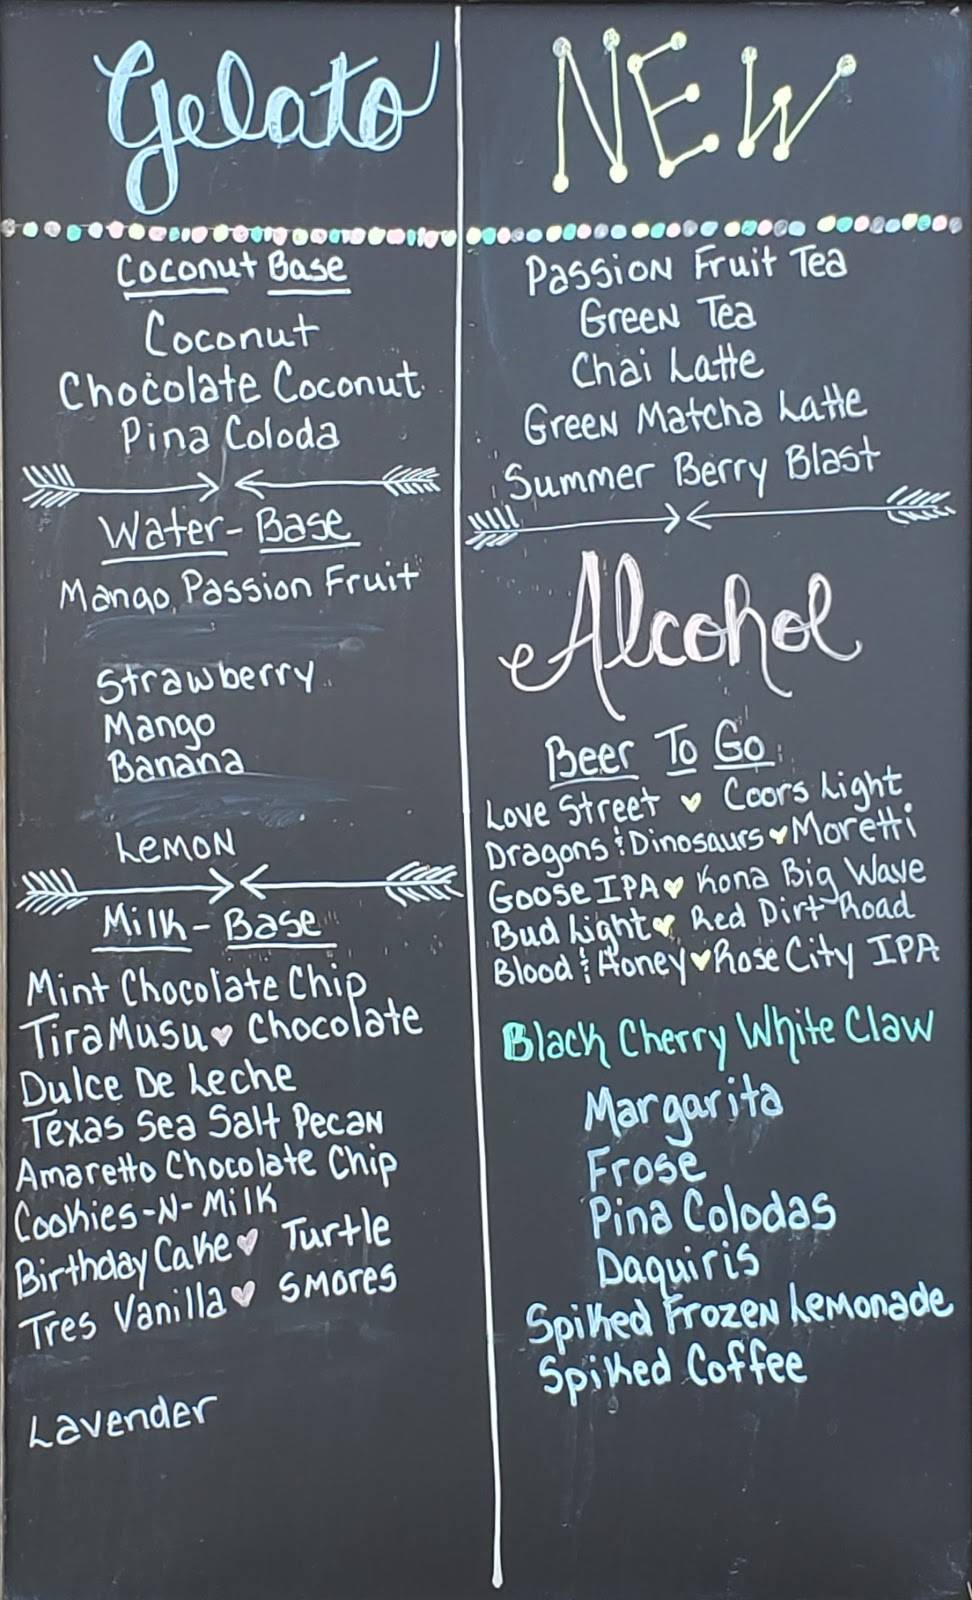 Gelato
Coconut Base
Coconut
Chocolate Coconut
Pina Coloda
Water-Base
Mango Passion Fruit
Strawberry
Mango
Banana
Lemon
Milk-Base
Mint Chocolate Chip
TiraMusu ♥ Chocolate
Dulce De Leche
Texas Sea Salt Pecan
Amaretto Chocolate Chip
Cookies-N-Milk
Birthday Cake ♥ Turtle
Tres Vanilla ♥ Smores
Lavender
NEW
Passion Fruit Tea
Green Tea
Chai Latte
Green Matcha Latte
Summer Berry Blast
Alcohol
Beer To Go
Love Street ♥ Coors Light
Dragons & Dinosaurs ♥ Moretti
Goose IPA ♥ Kona Big Wave
Bud Light ♥ Red Dirt Road
Blood & Honey ♥ Rose City IPA
Black Cherry White Claw
Margarita
Frose
Pina Colodas
Daquiris
Spiked Frozen Lemonade
Spiked Coffee